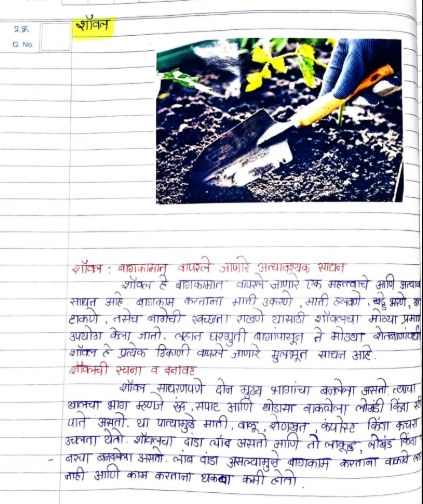 प्र.क्र.
Q. No.
शॉवेल
शॉवेल : बागकामात वापरले जाणारे अत्यावश्यक साधन
शॉवेल हे बागकामात वापरले जाणारे एक महत्त्वाचे आणि
साधन आहे. बागकाम करताना माती उकरणे, माती हलवणे, खड्डे भरणे,
टाकणे, तसेच बागेची स्वच्छता राखणे यासाठी शॉवेलचा मोठ्या
उपयोग केला जातो. लहान घरगुती बागांपासून ते मोठ्या
शॉवेल हे प्रत्येक ठिकाणी वापरले जाणारे मूलभूत साधन आहे.
शॉवेलची रचना व बनावट
शॉवेल साधारणपणे दोन मुख्य भागांचा बनलेला असतो. त्याचा
खालचा भाग म्हणजे रुंद, सपाट आणि थोडासा वाकलेला लोखंडी किंवा
पाते असतो. या पात्यामुळे माती, वाळू, शेणखत, कंपोस्ट किंवा कचरा
उचलता येतो. शॉवेलचा दांडा लांब असतो आणि तो लाकूड, लोखंड किंवा
बनलेला असतो. लांब दांडा असल्यामुळे बागकाम करताना वाकावे
नाही आणि काम करताना थकवा कमी होतो.